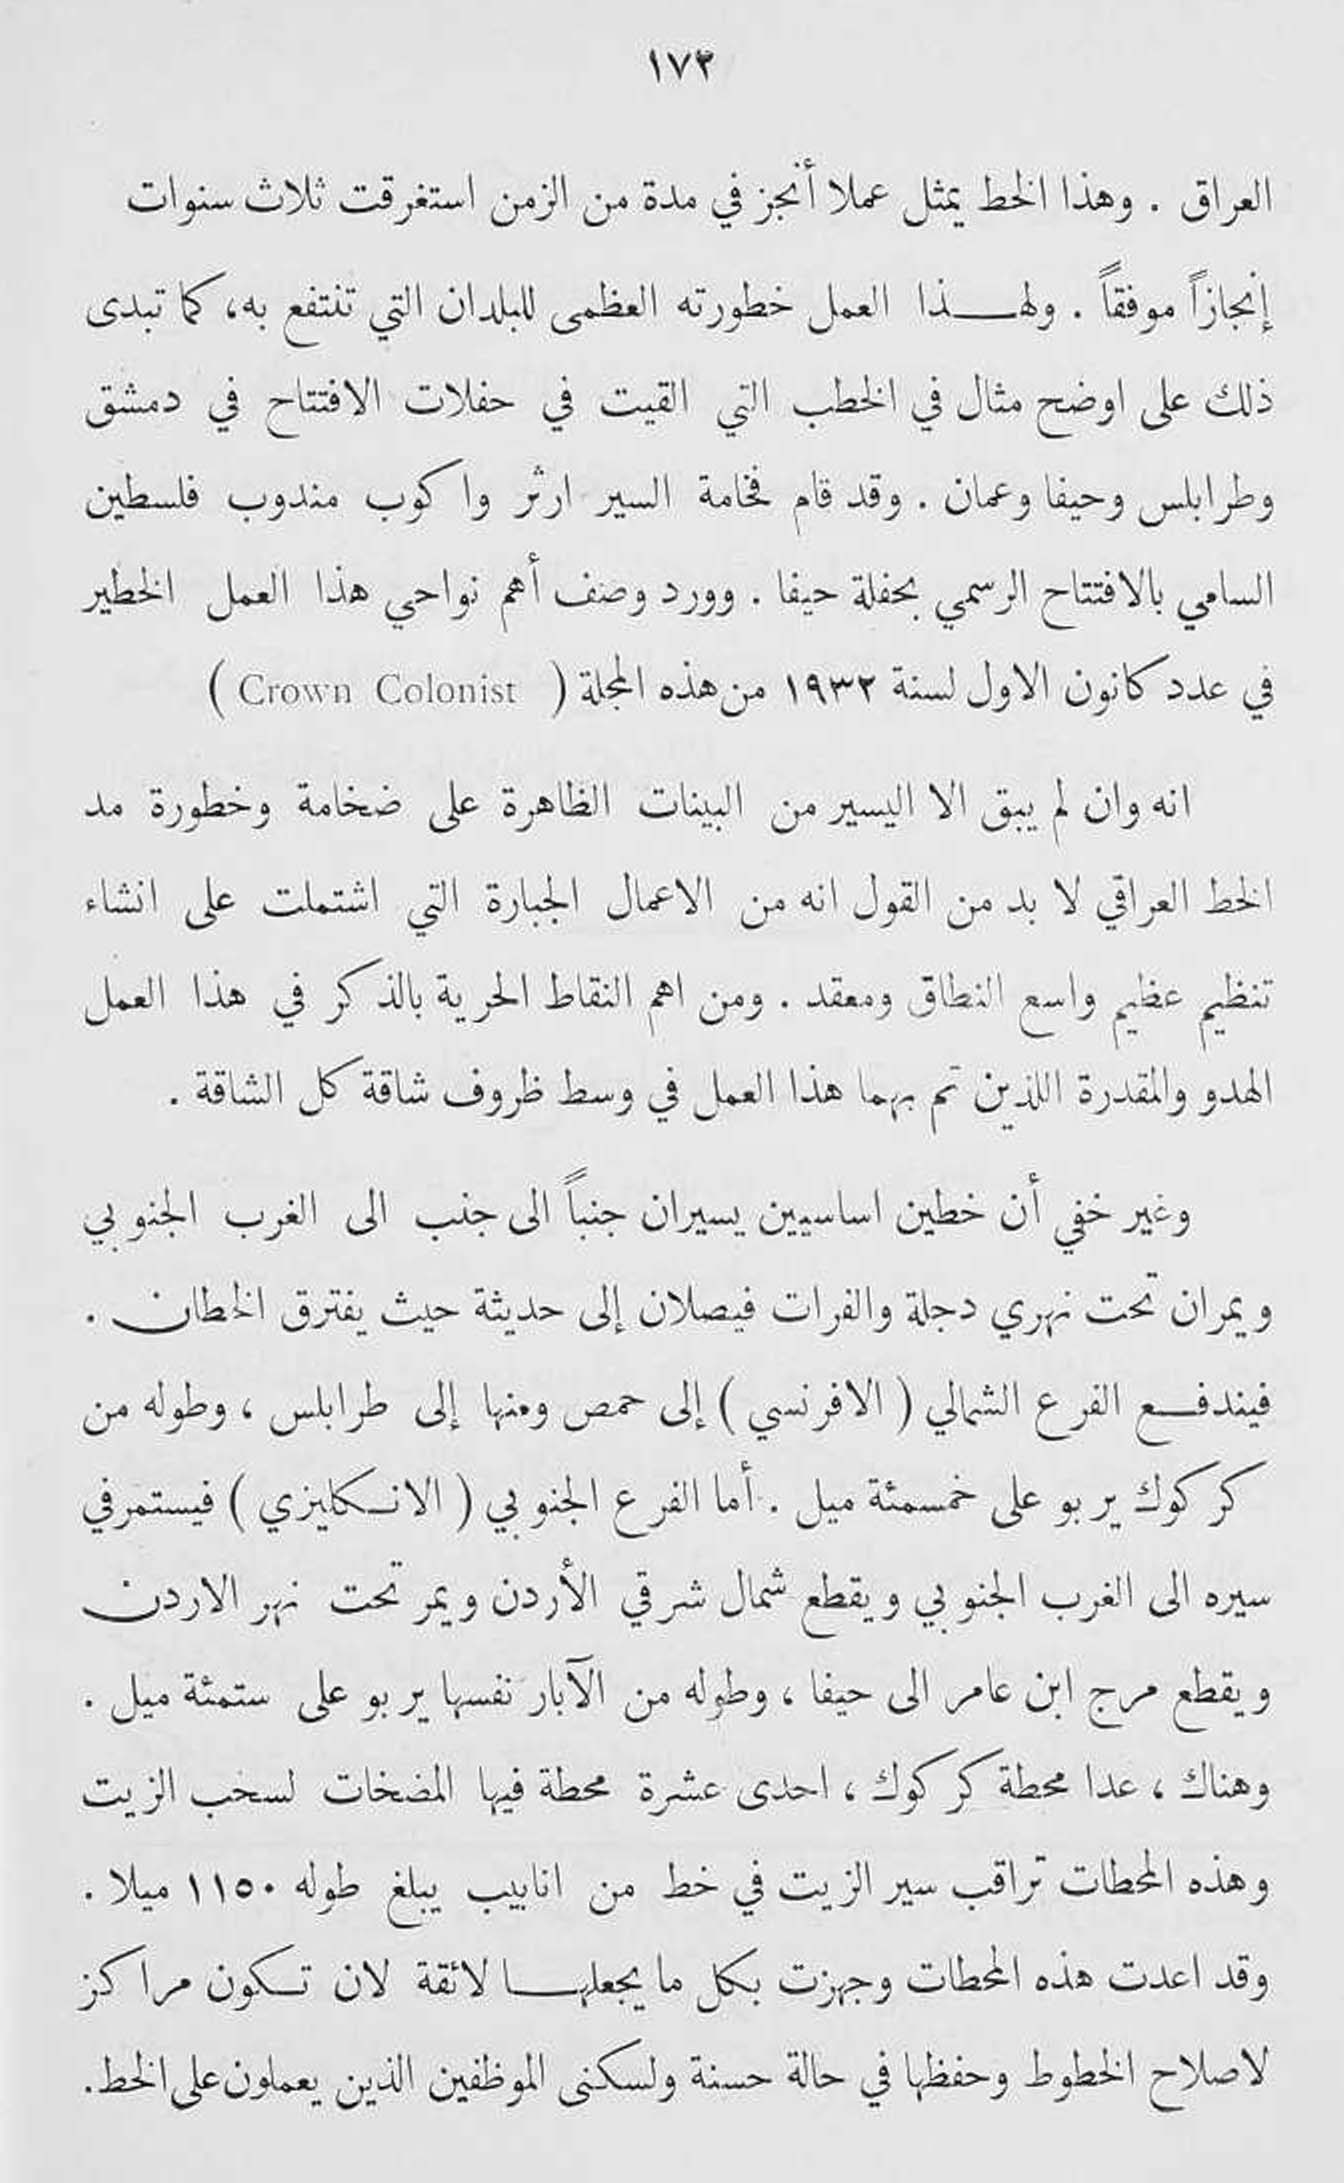 ١٧٣
العراق . وهذا الخط يمثل عملا أنجز في مدة من الزمن استغرقت ثلاث سنوات
إنجازاً موفقاً . ولهذا العمل خطورته العظمى للبلدان التي تنتفع به، كما تبدى
ذلك على اوضح مثال في الخطب التي القيت في حفلات الافتتاح في دمشق
وطرابلس وحيفا وعمان . وقد قام فخامة السير ارثر واكوب مندوب فلسطين
السامي بالافتتاح الرسمي بحفلة حيفا . وورد وصف أهم نواحي هذا العمل الخطير
في عدد كانون الاول لسنة ١٩٣٢ من هذه المجلة ( Crown Colonist )
انه وان لم يبق الا اليسير من البينات الظاهرة على ضخامة وخطورة مد
الخط العراقي لا بد من القول انه من الاعمال الجبارة التي اشتملت على انشاء
تنظيم عظيم واسع النطاق ومعقد . ومن اهم النقاط الحرية بالذكر في هذا العمل
الهدو والمقدرة اللذين تم بهما هذا العمل في وسط ظروف شاقة كل الشاقة .
وغير خفي أن خطين اساسيين يسيران جنباً الى جنب الى الغرب الجنوبي
ويمران تحت نهري دجلة والفرات فيصلان إلى حديثة حيث يفترق الخطان .
فيندفع الفرع الشمالي ( الافرنسي ) إلى حمص ومنها إلى طرابلس ، وطوله من
كركوك يربو على خمسمئة ميل . أما الفرع الجنوبي ( الانكليزي ) فيستمر في
سيره الى الغرب الجنوبي ويقطع شمال شرقي الأردن ويمر تحت نهر الاردن
ويقطع مرج ابن عامر الى حيفا ، وطوله من الآبار نفسها يربو على ستمئة ميل .
وهناك ، عدا محطة كركوك ، احدى عشرة محطة فيها المضخات لسحب الزيت
وهذه المحطات تراقب سير الزيت في خط من انابيب يبلغ طوله ١١٥٠ ميلا .
وقد اعدت هذه المحطات وجهزت بكل ما يجعلها لائقة لان تكون مراكز
لاصلاح الخطوط وحفظها في حالة حسنة ولسكنى الموظفين الذين يعملون على الخط.